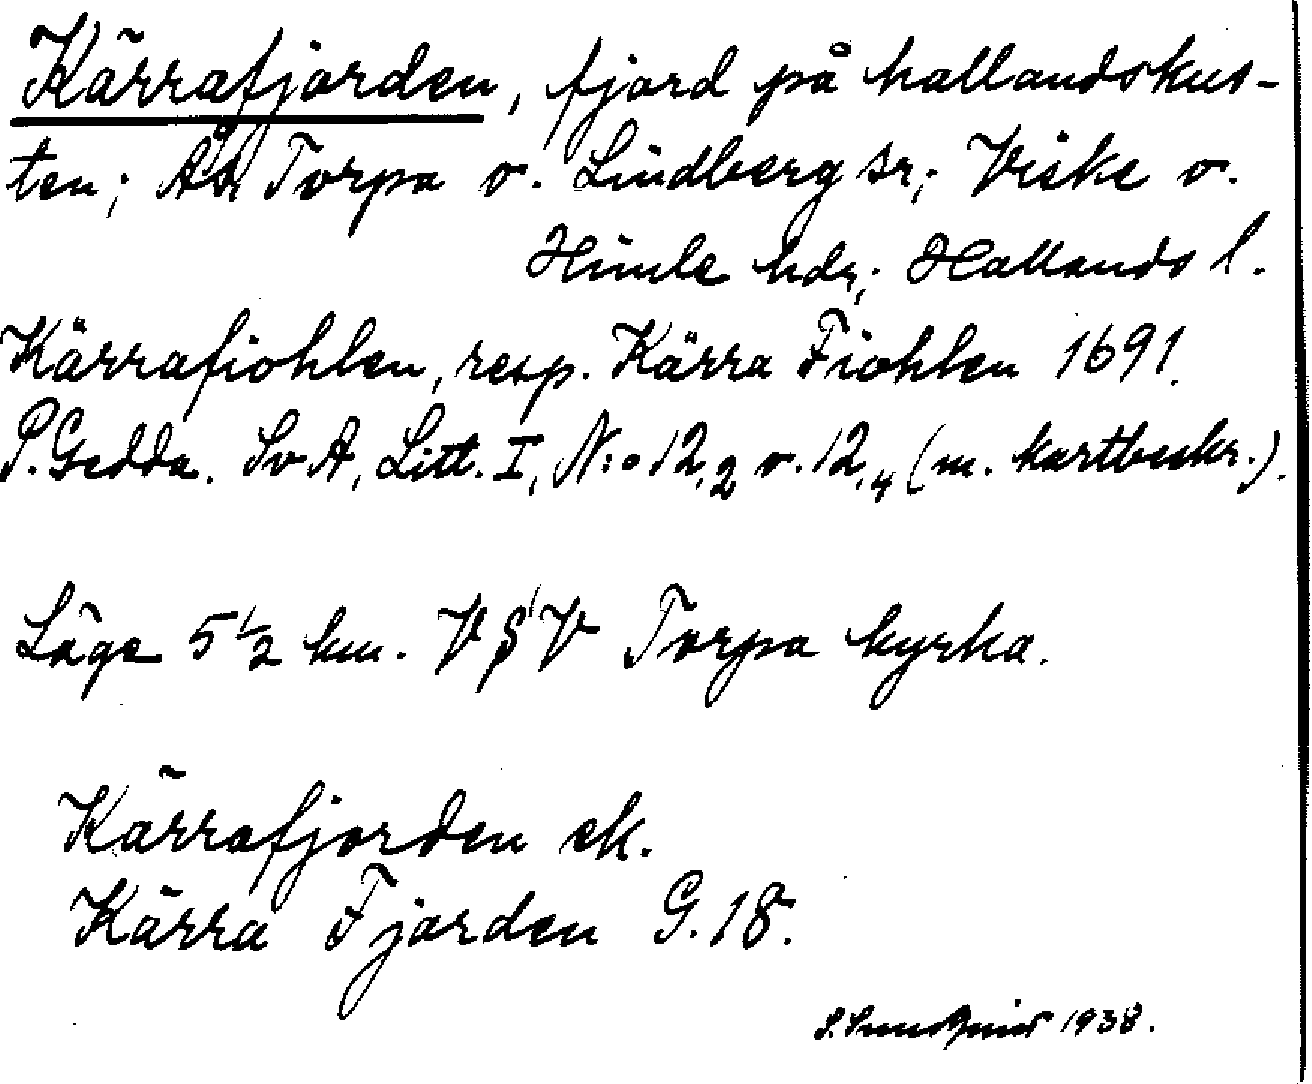 Kärrafjorden, fjord på hallandskus-
ten; Ås, Torpa o. Lindberg sr; Viske o.
Himle hdr; Hallands l.
Kärrafiohlen, resp. Kärra Fiohlen 1691.
P. Gedda. SvA, Litt. I, N:o 12,2 o. 12,4 (m. kartbeskr.).
Läge 5 1/2 km. V S V Torpa kyrka.
Kärrafjorden ek.
Kärra Fjorden G. 18.
1938.